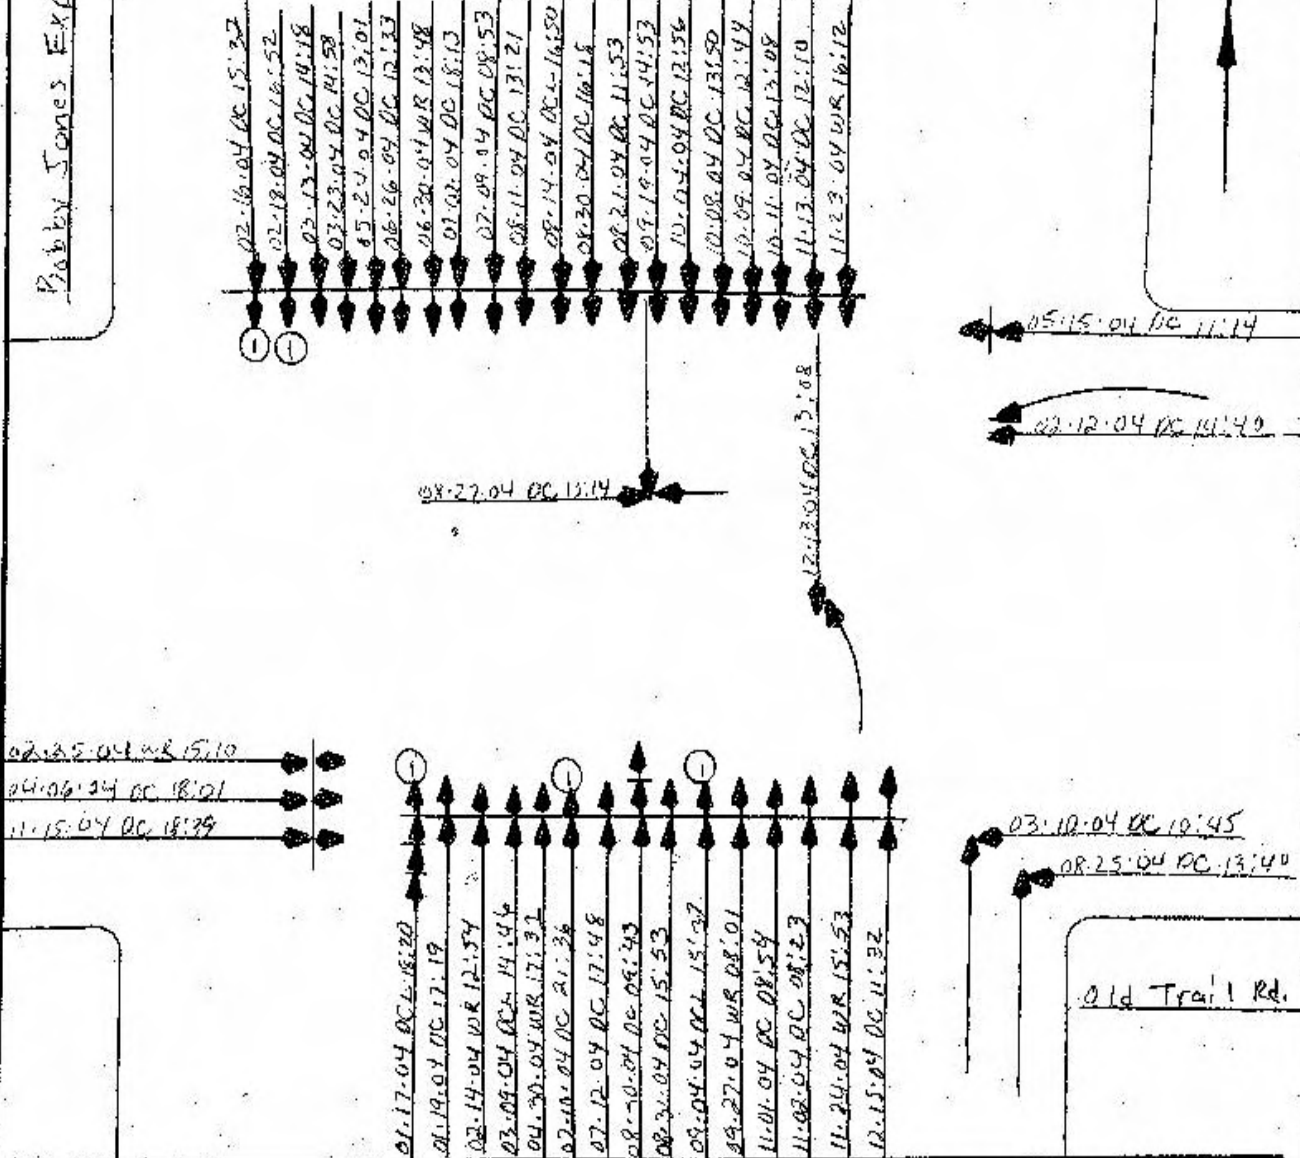 Bobby Jones Exp
02-16-04 DC 15:37
02-18-04 DC 16:52
03-13-04 DC 14:18
03-23-04 DC 14:58
05-24-04 DC 13:01
06-26-04 DC 12:33
06-30-04 WR 13:48
07-02-04 DC 18:13
07-09-04 DC 08:53
08-11-04 DC 13:21
08-14-04 DCL 16:50
08-30-04 DC 16:15
08-21-04 DC 11:53
09-19-04 DC 14:53
10-04-04 DC 12:56
10-08-04 DC 13:50
10-09-04 DC 12:49
10-11-04 DC 13:08
11-13-04 DC 12:10
11-23-04 WR 16:12
1
1
05-15-04 DC 11:14
02-12-04 DC 14:40
08-27-04 DC 13:14
12-13-04 DC 13:08
02-25-04 WR 15:10
04-06-04 DC 18:01
11-15-04 DC 18:39
1
1
1
03-10-04 DC 10:45
08-25-04 DC 13:40
01-17-04 DCL 18:20
01-19-04 DC 17:19
02-14-04 WR 12:54
03-09-04 DCL 14:46
04-30-04 WR 17:32
07-10-04 DC 21:36
07-12-04 DC 17:48
08-30-04 DC 09:43
08-31-04 DC 15:53
09-04-04 DCL 15:37
09-27-04 WR 08:01
11-01-04 DC 08:54
11-02-04 DC 08:23
11-24-04 WR 15:53
12-15-04 DC 11:32
Old Trail Rd.